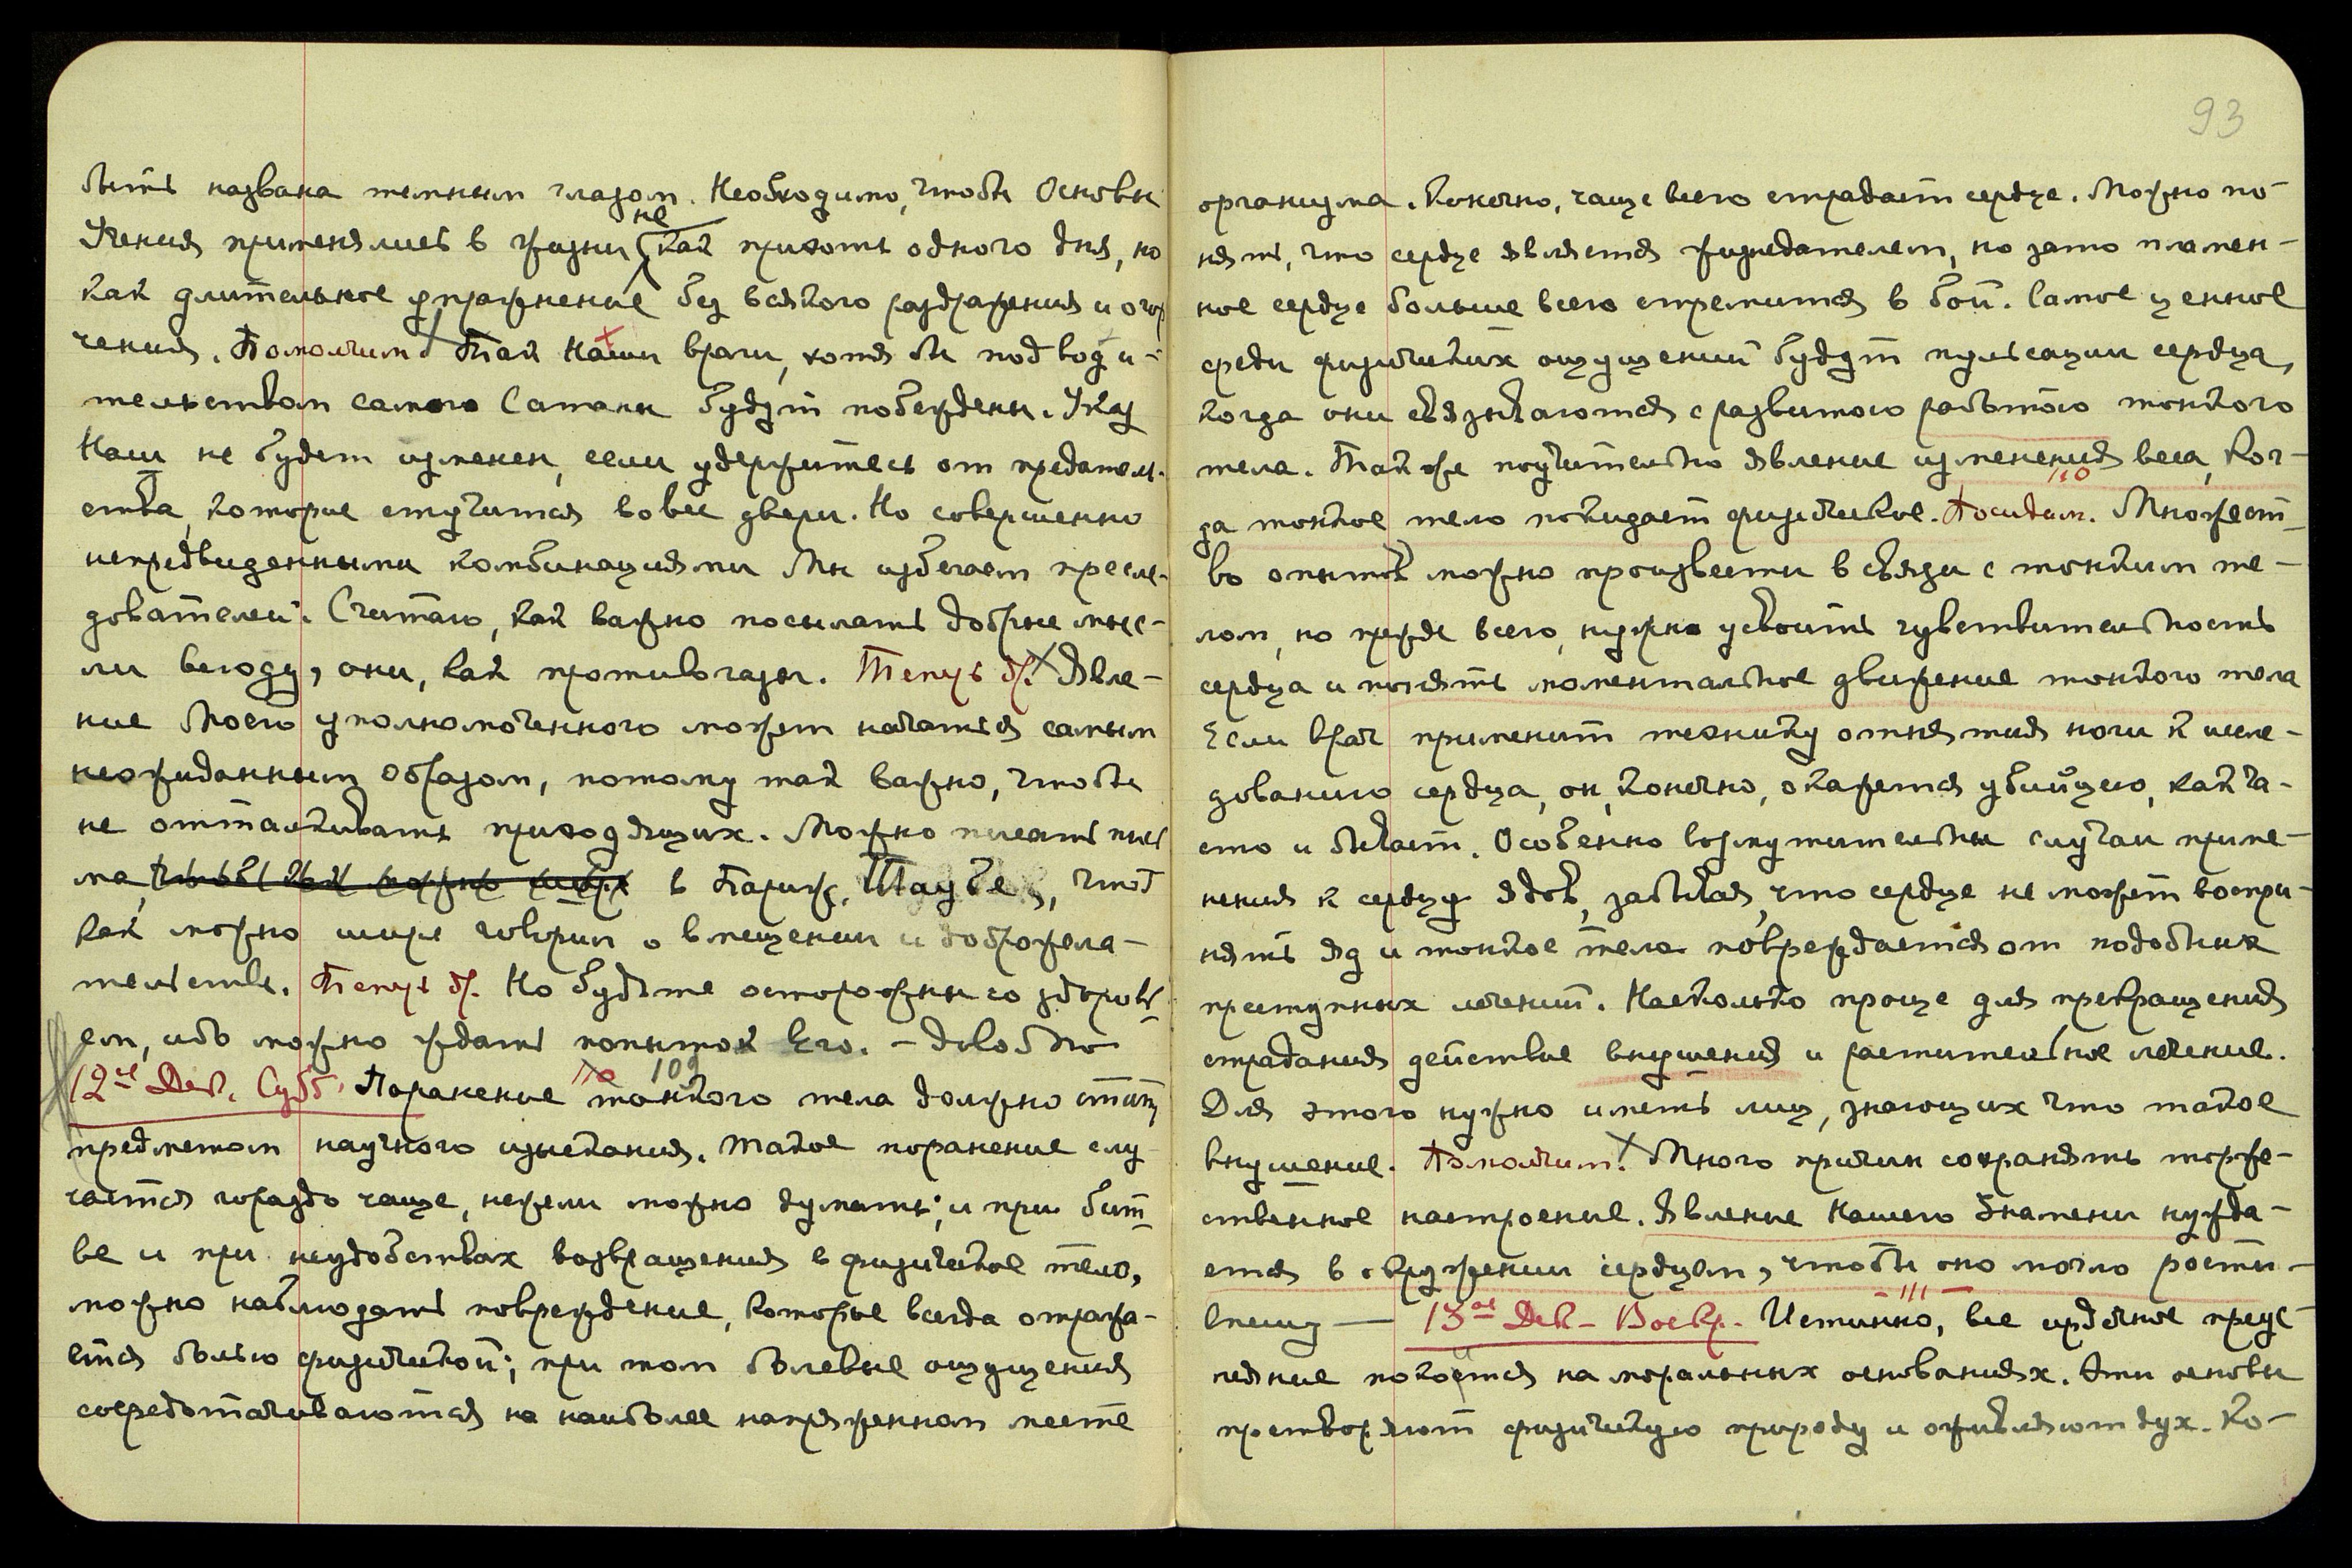 быть названа темным глазом. Необходимо, чтобы Основы
не
Учения применялись в жизни как прихоть одного дня, но
как длительное упражнение без всякого раздражения и огор
чения. Помолчим. Так Наши враги, хотя бы под води-
тельством самого Сатаны будут побеждены. Указ
Наш не будет изменен, если удержитесь от предатель-
ства, которые стучится во все двери. Но совершенно
непредвиденными комбинациями Мы избегаем пресле-
дователей. Считаю, как важно посылать добрые мыс-
ли всюду, они, как противогазы. Теперь др. Явле-
ние Моего уполномоченного может начаться самым
неожиданным образом, потому так важно, чтобы
не отталкивать приходящих. Можно писать пись
ма, в Париж, Таубе, чтоб
как можно шире говорил о вмещении и доброжела-
тельстве. Теперь др. Но будьте осторожны со здоровь
ем, ибо можно ждать попыток Его. – Довольно
109
12ое Дек. Субб. 110 Поранение тонкого тела должно стать
предметом научного изыскания. Такое поранение слу
чается гораздо чаще, нежели можно думать; и при бит
ве и при неудобствах возвращения в физическое тело,
можно наблюдать повреждение, которое всегда отража-
ется болью физической; при том болевые ощущения
сосредоточиваются на наиболее напряженном месте
93
организма. Конечно, чаще всего страдает сердце. Можно по-
нять, что сердце является жизнедателем, но зато пламен-
ное сердце больше всего стремится в бой. Самое ценное
среди физических ощущений будут пульсации сердца,
когда они связываются с развитою работою тонкого
тела. Так же поучительно явление изменения веса, ког-
110
да тонкое тело покидает физическое. Посидим. Множест
во опытов можно произвести в связи с тонким те-
лом, но прежде всего, нужно усвоить чувствительность
сердца и понять моментальное движение тонкого тела
Если врач применит технику отнятия ноги к иссле-
дованию сердца, он, конечно, окажется убийцею, как ча-
сто и бывает. Особенно возмутительны случаи приме-
нения к сердцу ядов, забывая, что сердце не может воспри-
нять яд и тонкое тело повреждается от подобных
преступных лечений. Насколько проще для прекращения
страдания действие внушения и растительное лечение.
Для этого нужно иметь лиц, знающих что такое
внушение. Помолчим. Много причин сохранять торже-
ственное настроение. Явление Нашего Знамени нужда-
ется в окружении сердцем, чтобы оно могло расти
111
13ое Дек – Воскр. – Истинно, все сердечное преус
пеяние покоится на моральных основаниях. Эти основы
претворяют физическую природу и оживляют дух. Ко-